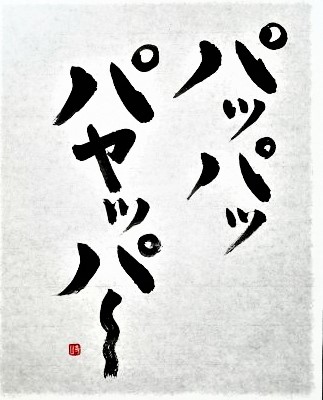 パッパッ
パヤッパ〜